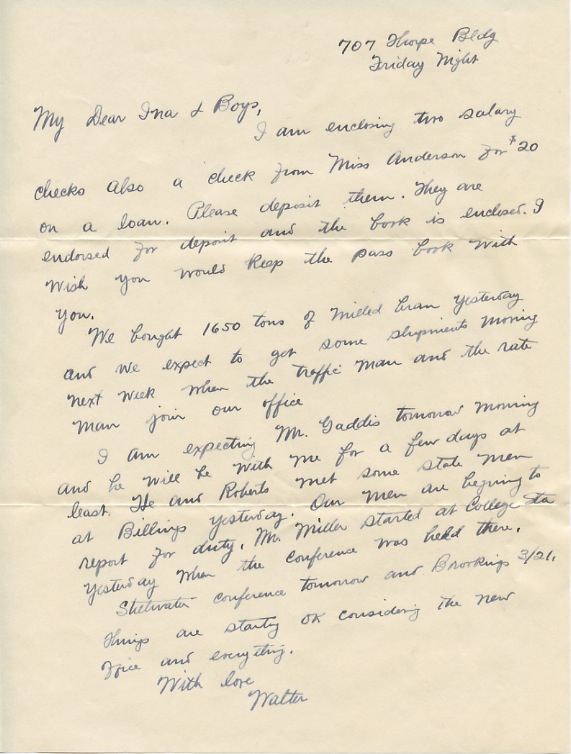 707 Thorpe Bldg
Friday Night
My Dear Ina & Boys,
I am enclosing two salary
checks also a check from Miss Anderson for $20
on a loan. Please deposit them. They are
endorsed for deposit and the book is enclosed. I
wish you would keep the pass book with
you.
We bought 1650 tons of milled bran yesterday
and we expect to get some shipments moving
next week when the traffic man and the rate
man join our office
I am expecting Mr. Gaddis tomorrow morning
and he will be with me for a few days at
least. He and Roberts met some state men
at Billings yesterday. Our men are begining to
report for duty. Mr. Miller started at College Sta
yesterday when the conference was held there.
Stillwater conference tomorrow and Brookings 3/21.
Things are starting OK considering the new
office and everything.
With love
Walter